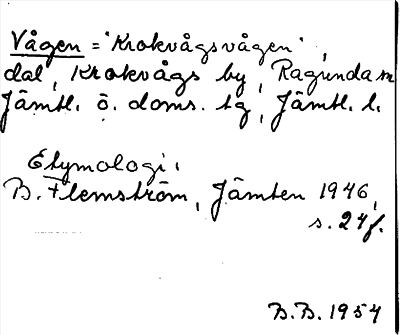 Vågen = "Krokvågsvågen",
dal, Krokvågs by, Ragunda sn
Jämtl. ö. doms. tg, Jämtl. l.
Etymologi:
B. Flemström, Jämten 1946,
s. 24f.
B.B. 1954